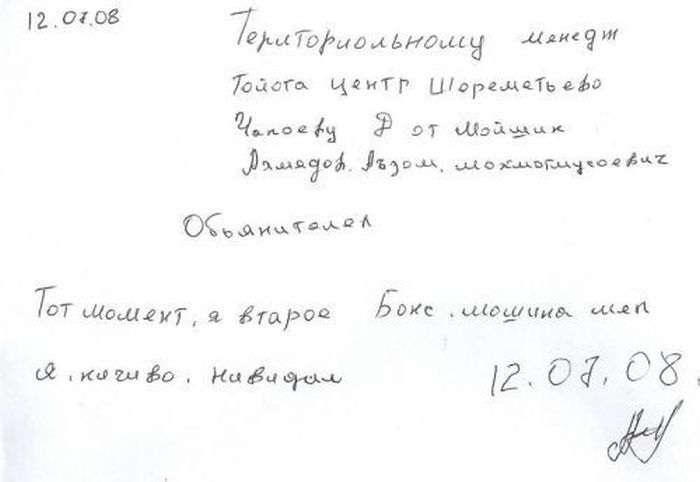 12.07.08
Териториольному менедж
Тойота центр Шореметьево
Чапоеву Д от Мойшик
Ахмедов. Аъзом. мохмотмусоевич
Обьянителел
Тот момент, я второе Бокс. мошина меп
я. ничиво. нивидал 12.07.08.